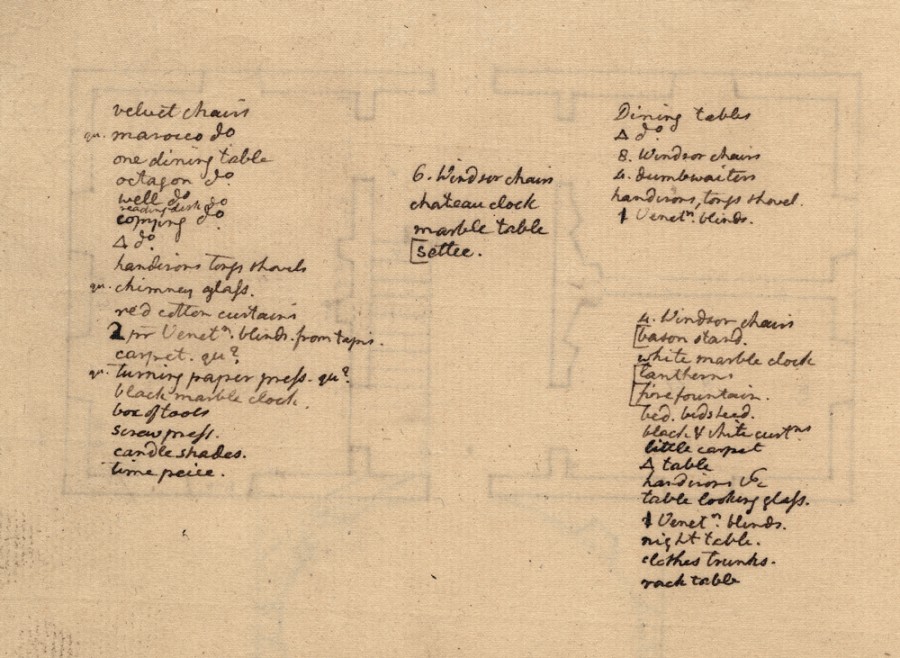 velvet chairs
qu. marocco do
one dining table
octagon do
well do
reading desk do
copying do
Δ do
handirons tongs shovels
qu. chimney glass.
red cotton curtains
2 pr Venetn. blinds. from tapis.
carpet. qu?
qu. turning paper press. qu?
black marble clock.
box of tools
screw press.
candle shades.
time peice.
6. Windsor chairs
chateau clock
marble table
[settee.
Dining tables
Δ do
8. Windsor chairs
4. dumbwaiters
handirons, tongs shovel.
1 Venetn. blinds.
4. Windsor chairs
[bason stand.
white marble clock
[lantherns
[fire fountain.
bed. bidsteed.
black & white curtns
little carpet
Δ table
handirons &c
table looking glass.
1 Venetn. blinds.
night table.
clothes trunks.
rack table